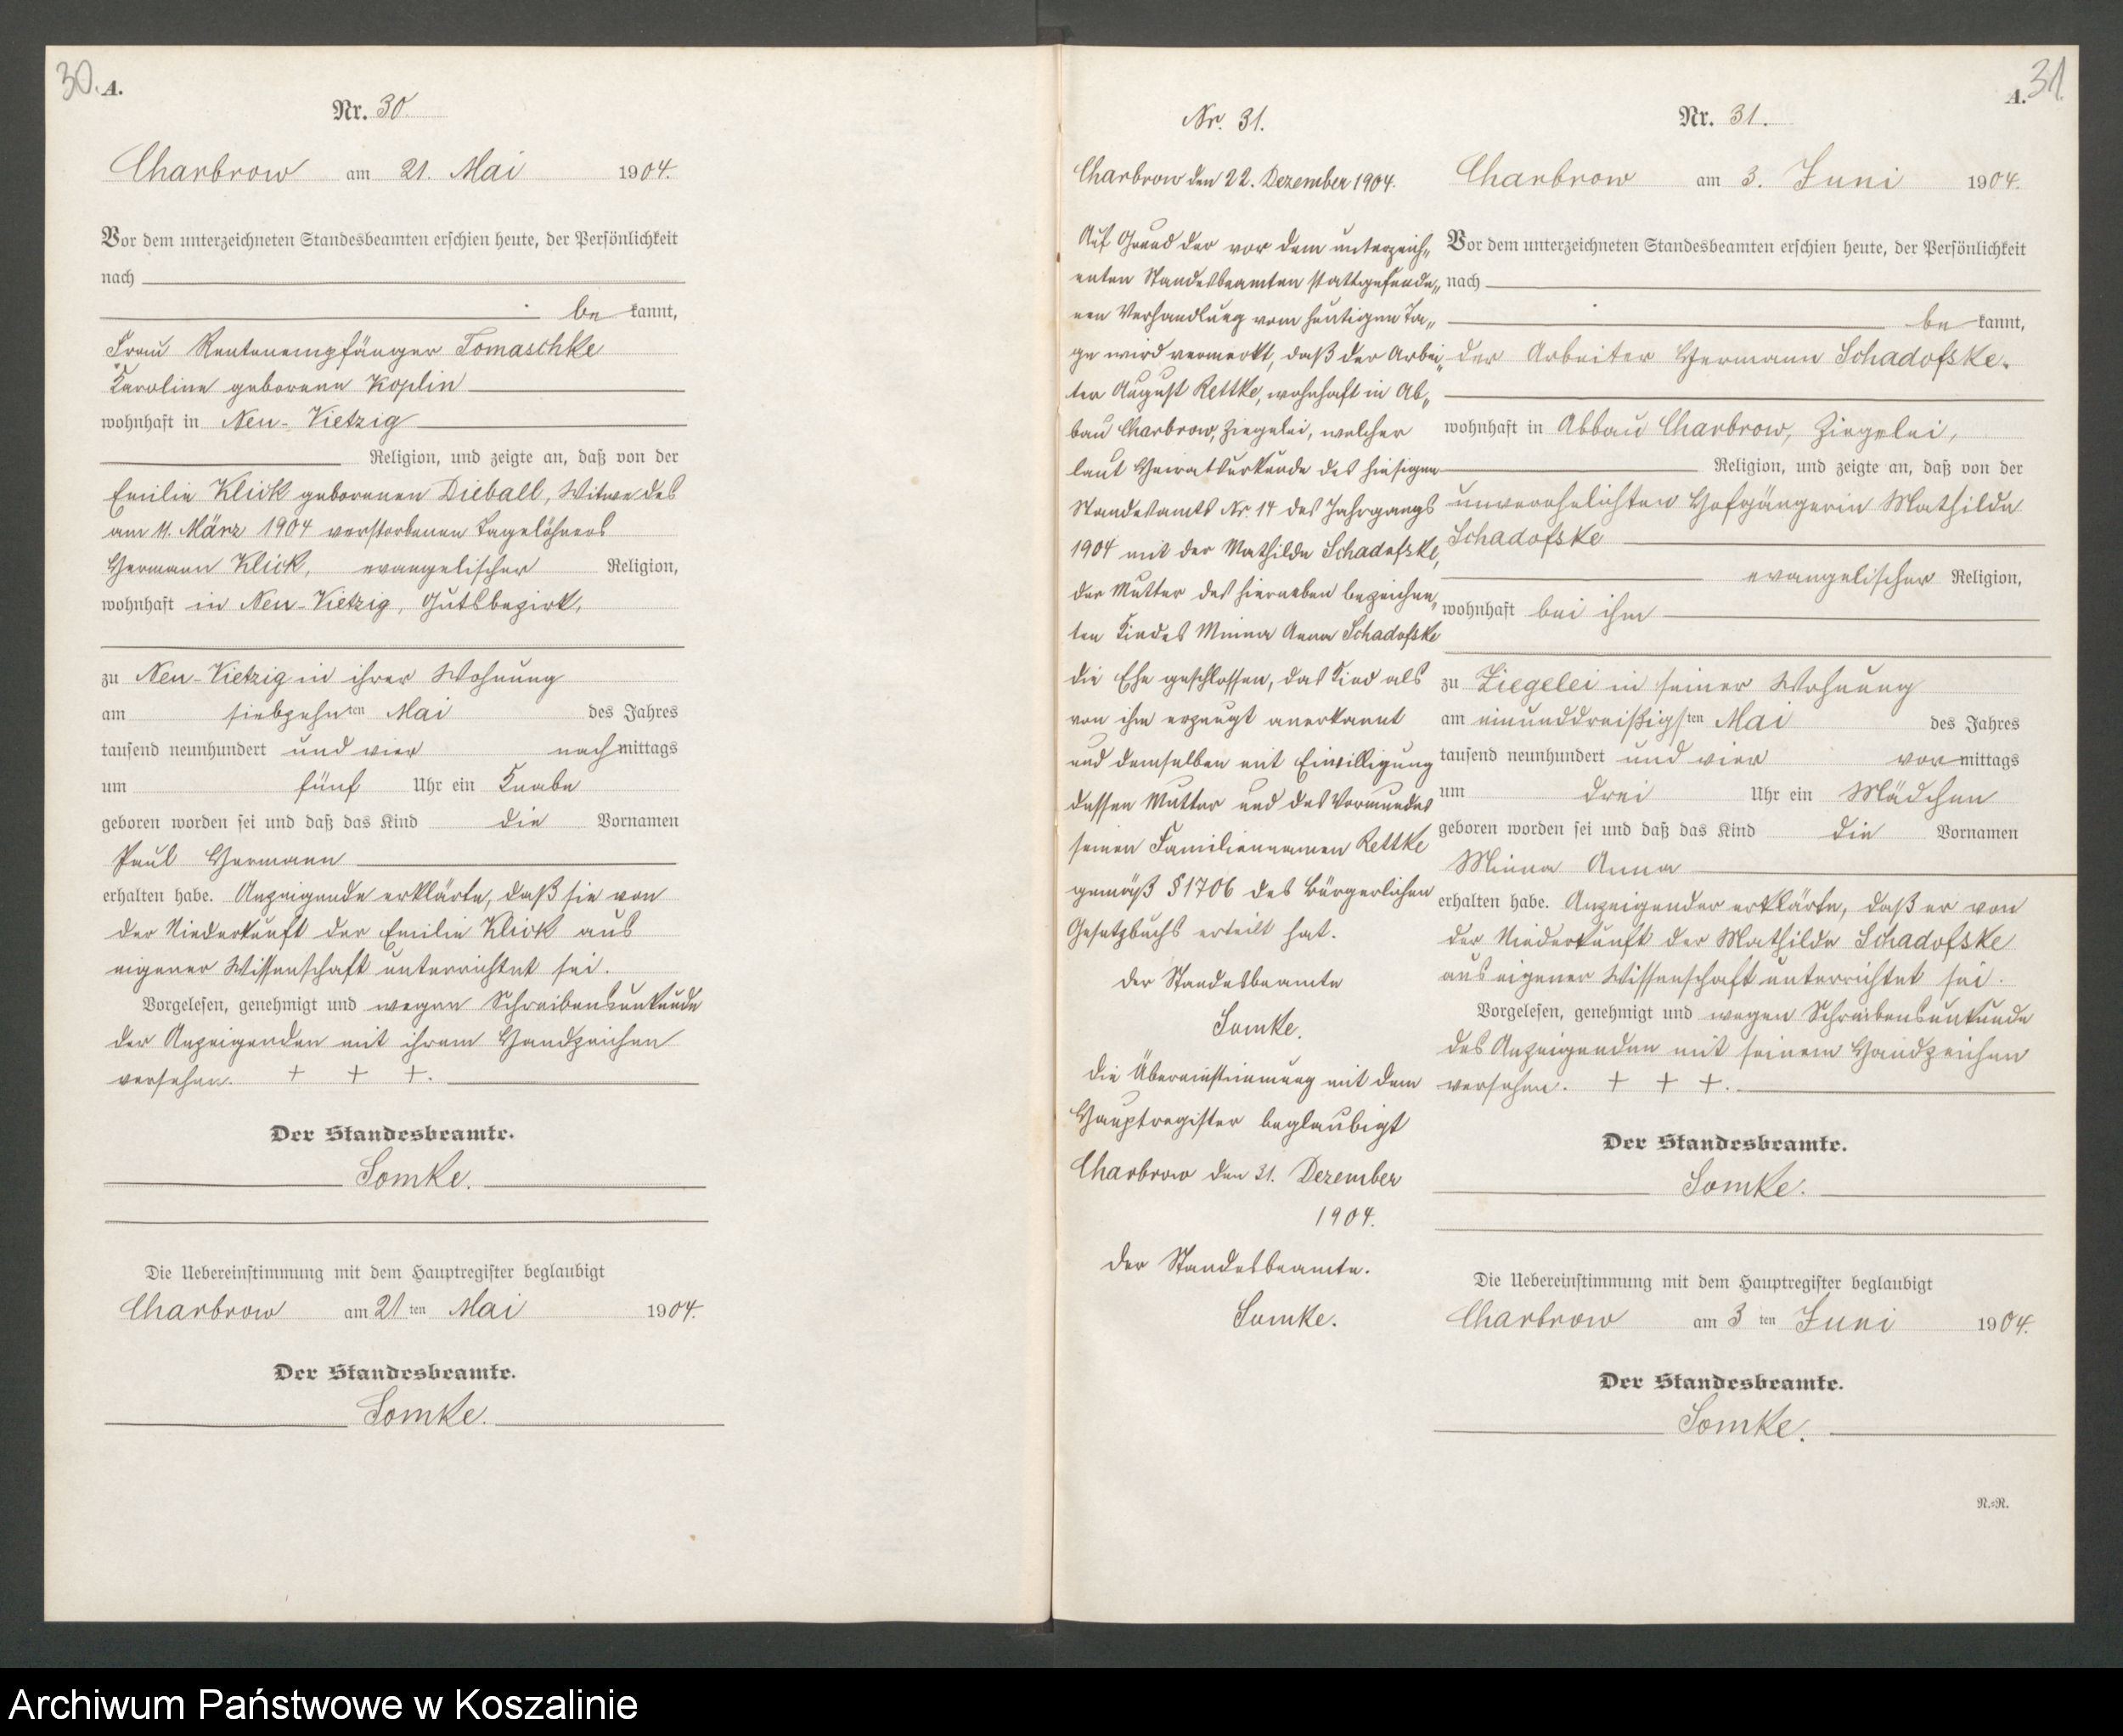 30. A.
Nr. 30.
Charbrow am 21. Mai 1904.
Vor dem unterzeichneten Standesbeamten erschien heute, der Persönlichkeit
nach
be kannt,
Frau Rentenempfänger Tomaschke
Karoline geborene Koplin
wohnhaft in Neu-Vietzig
Religion, und zeigte an, daß von der
Emilie Klick geborenen Dieball, Witwe des
am 11. März 1904 verstorbenen Tagelöhners
Hermann Klick, evangelischer Religion,
wohnhaft in Neu-Vietzig, Gutsbezirk,
zu Neu-Vietzig in ihrer Wohnung
am siebzehnten Mai des Jahres
tausend neunhundert und vier nachmittags
um fünf Uhr ein Knabe
geboren worden sei und daß das Kind die Vornamen
Paul Hermann
erhalten habe. Anzeigende erklärte, daß sie von
der Niederkunft der Emilie Klick aus
eigener Wissenschaft unterrichtet sei.
Vorgelesen, genehmigt und wegen Schreibensunkunde
der Anzeigenden mit ihrem Handzeichen
versehen. + + +.
Der Standesbeamte.
Somke.
Die Uebereinstimmung mit dem Hauptregister beglaubigt
Charbrow am 21ten Mai 1904.
Der Standesbeamte.
Somke.
Nr. 31.
Charbrow den 22. Dezember 1904.
Auf Grund der vor dem unterzeich„
neten Standesbeamten stattgefunde„
nen Verhandlung vom heutigen Ta„
ge wird vermerkt, daß der Arbei„
ter August Rettke, wohnhaft in Ab„
bau Charbrow, Ziegelei, welcher
laut Heiratsurkunde des hiesigen
Standesamts Nr. 14 des Jahrgangs
1904 mit der Mathilde Schadofske,
der Mutter des hierneben bezeichne„
ten Kindes Minna Anna Schadofske
die Ehe geschlossen, das Kind als
von ihm erzeugt anerkannt
und demselben mit Einwilligung
dessen Mutter und des Vormundes
seinen Familiennamen Rettke
gemäß § 1706 des Bürgerlichen
Gesetzbuchs erteilt hat.
Der Standesbeamte
Somke.
Die Übereinstimmung mit dem
Hauptregister beglaubigt
Charbrow den 31. Dezember
1904.
Der Standesbeamte.
Somke.
A. 31
Nr. 31.
Charbrow am 3. Juni 1904.
Vor dem unterzeichneten Standesbeamten erschien heute, der Persönlichkeit
nach
be kannt,
der Arbeiter Hermann Schadofske.
wohnhaft in Abbau Charbrow, Ziegelei,
Religion, und zeigte an, daß von der
unverehelichten Hofgängerin Mathilde
Schadofske
evangelischer Religion,
wohnhaft bei ihm
zu Ziegelei in seiner Wohnung
am einunddreißigsten Mai des Jahres
tausend neunhundert und vier vormittags
um drei Uhr ein Mädchen
geboren worden sei und daß das Kind die Vornamen
Minna Anna
erhalten habe. Anzeigender erklärte, daß er von
der Niederkunft der Mathilde Schadofske
aus eigener Wissenschaft unterrichtet sei.
Vorgelesen, genehmigt und wegen Schreibensunkunde
des Anzeigenden mit seinem Handzeichen
versehen. + + +.
Der Standesbeamte.
Somke.
Die Uebereinstimmung mit dem Hauptregister beglaubigt
Charbrow am 3 ten Juni 1904.
Der Standesbeamte.
Somke.
N.=R.
Archiwum Państwowe w Koszalinie